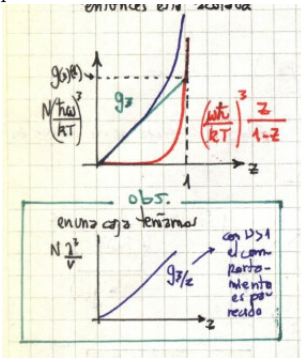 entonces esta acotada
g₃(1)
N(ħω/kT)³
g₃
(ωħ/kT)³ z/1-z
z
1
obs.
en una caja teníamos
N λ³/V
g3/2
z
con D>1
el com
porta-
miento
es pa
recido